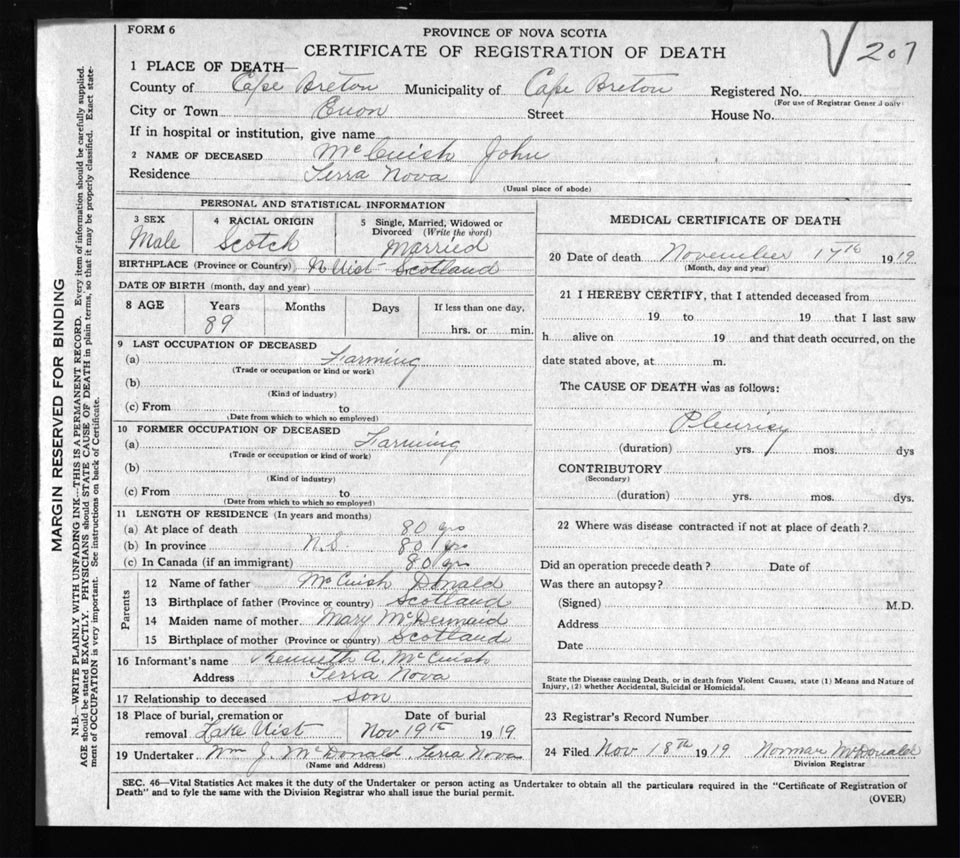 FORM 6
PROVINCE OF NOVA SCOTIA
CERTIFICATE OF REGISTRATION OF DEATH
V 207
1 PLACE OF DEATH—
County of Cape Breton Municipality of Cape Breton Registered No.
(For use of Registrar General only)
City or Town Enon Street House No.
If in hospital or institution, give name
2 NAME OF DECEASED McCuish John
Residence Terra Nova
(Usual place of abode)
PERSONAL AND STATISTICAL INFORMATION
3 SEX Male
4 RACIAL ORIGIN Scotch
5 Single, Married, Widowed or
Divorced (Write the word)
Married
BIRTHPLACE (Province or Country) N Uist Scotland
DATE OF BIRTH (month, day and year)
8 AGE Years Months Days If less than one day,
89 hrs. or min.
9 LAST OCCUPATION OF DECEASED
(a) Farming
(Trade or occupation or kind or work)
(b)
(Kind of industry)
(c) From to
(Date from which to which so employed)
10 FORMER OCCUPATION OF DECEASED
(a) Farming
(Trade or occupation or kind of work)
(b)
(Kind of industry)
(c) From to
(Date from which to which so employed)
11 LENGTH OF RESIDENCE (In years and months)
(a) At place of death 80 yrs
(b) In province N.S. 80 yrs
(c) In Canada (if an immigrant) 80 yrs
Parents
12 Name of father McCuish Donald
13 Birthplace of father (Province or country) Scotland
14 Maiden name of mother Mary McDermaid
15 Birthplace of mother (Province or country) Scotland
16 Informant's name Kenneth A. McCuish
Address Terra Nova
17 Relationship to deceased son
18 Place of burial, cremation or Date of burial
removal Lake Uist Nov 19th 1919
19 Undertaker Wm J. McDonald Terra Nova
(Name and Address)
MEDICAL CERTIFICATE OF DEATH
20 Date of death November 17th 1919
(Month, day and year)
21 I HEREBY CERTIFY, that I attended deceased from
19 to 19 that I last saw
h alive on 19 and that death occurred, on the
date stated above, at m.
The CAUSE OF DEATH was as follows:
Pleurisy
(duration) yrs. mos. dys
CONTRIBUTORY
(Secondary)
(duration) yrs. mos. dys.
22 Where was disease contracted if not at place of death?
Did an operation precede death? Date of
Was there an autopsy?
(Signed) M.D.
Address
Date
State the Disease causing Death, or in death from Violent Causes, state (1) Means and Nature of
Injury, (2) whether Accidental, Suicidal or Homicidal.
23 Registrar's Record Number
24 Filed Nov 18th 1919 Norman McDonald
Division Registrar
SEC. 46—Vital Statistics Act makes it the duty of the Undertaker or person acting as Undertaker to obtain all the particulars required in the "Certificate of Registration of
Death" and to fyle the same with the Division Registrar who shall issue the burial permit.
(OVER)
MARGIN RESERVED FOR BINDING
N.B.—WRITE PLAINLY WITH UNFADING INK—THIS IS A PERMANENT RECORD. Every item of information should be carefully supplied.
AGE should be stated EXACTLY. PHYSICIANS should STATE CAUSE OF DEATH in plain terms, so that it may be properly classified. Exact state-
ment of OCCUPATION is very important. See instructions on back of Certificate.